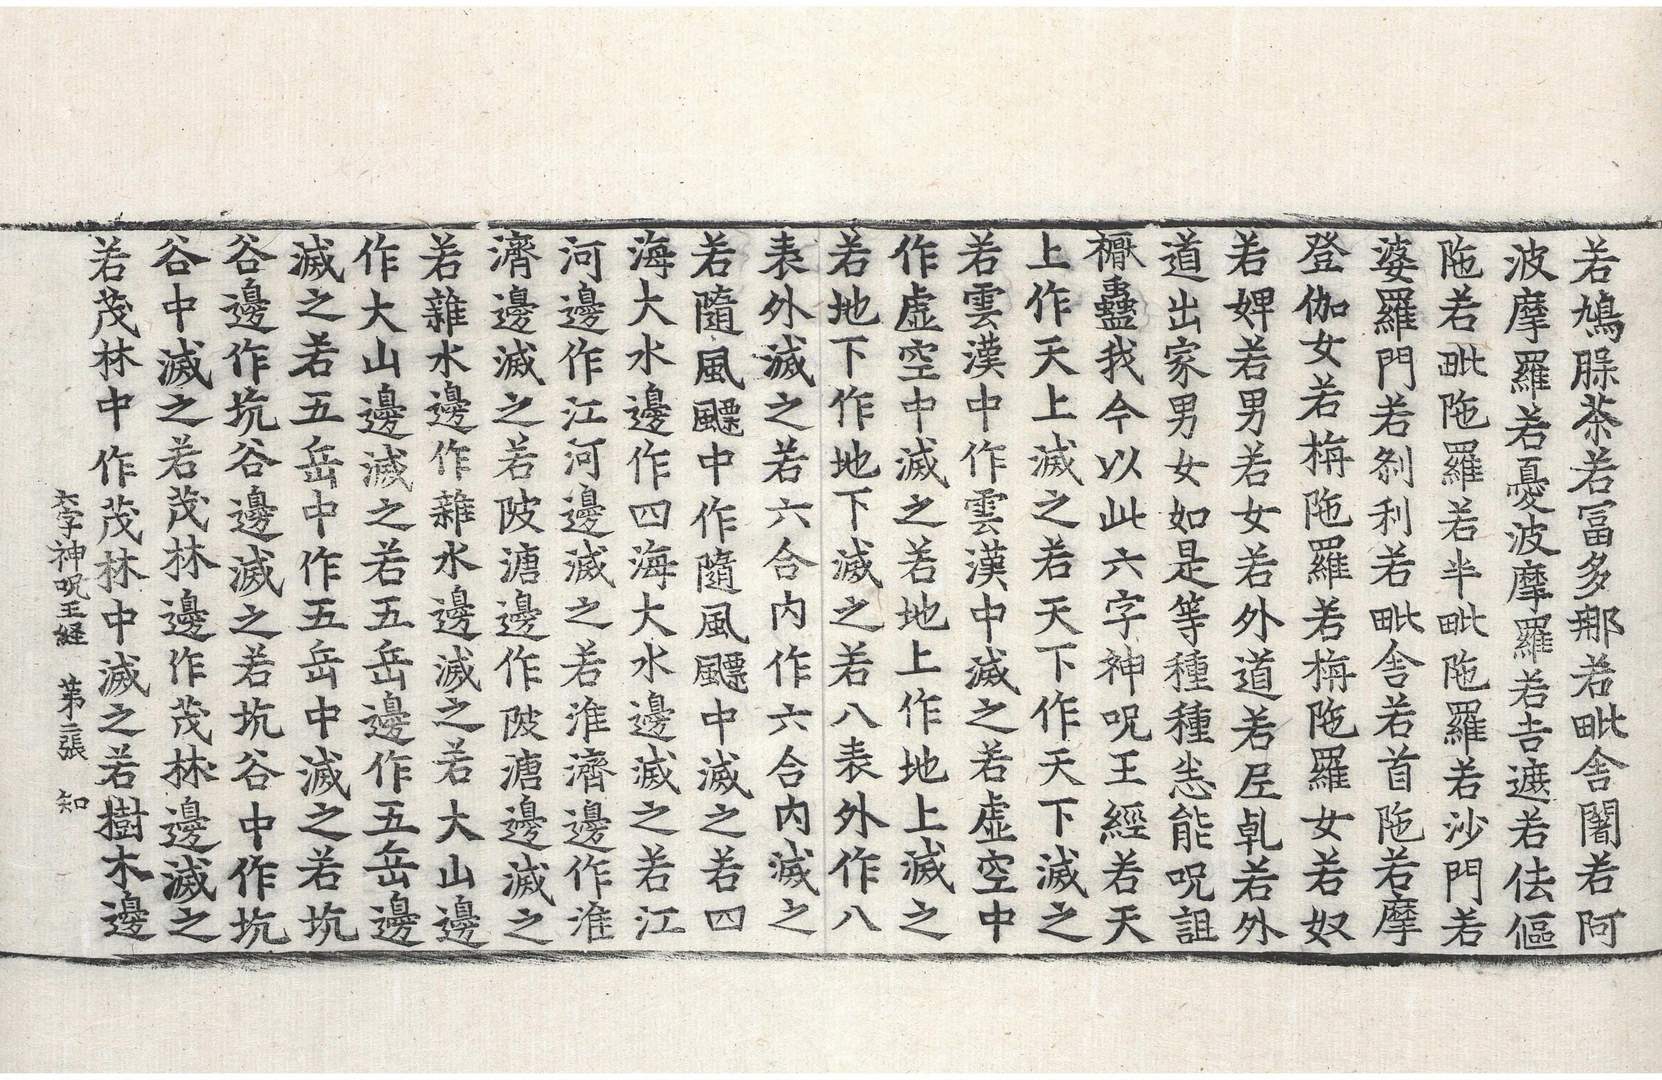 若鳩腬茶若冨多那若毗舎闍若阿
波摩羅若憂波摩羅若吉遮若佉傴
陁若毗陁羅若半毗陁羅若沙門若
婆羅門若剎利若毗舎若首陁若摩
登伽女若栴陁羅若栴陁羅女若奴
若婢若男若女若外道若尼乹若外
道出家男女如是等種種恙能呪詛
蠱我今以此六字神呪王經若天
上作天上滅之若天下作天下滅之
若雲漢中作雲漢中滅之若虛空中
作虛空中滅之若地上作地上滅之
若地下作地下滅之若八表外作八
表外滅之若六合內作六合內滅之
若隨風飃中作隨風飃中滅之若四
海大水邊作四海大水邊滅之若江
河邊作江河邊滅之若淮濟邊作淮
濟邊滅之若陂溏邊作陂溏邊滅之
若雜水邊作雜水邊滅之若大山邊
作大山邊滅之若五岳邊作五岳邊
滅之若五岳中作五岳中滅之若坑
谷邊作坑谷邊滅之若坑谷中作坑
谷中滅之若茂林邊作茂林邊滅之
若茂林中作茂林中滅之若樹木邊
六字神呪王経 第二張 知